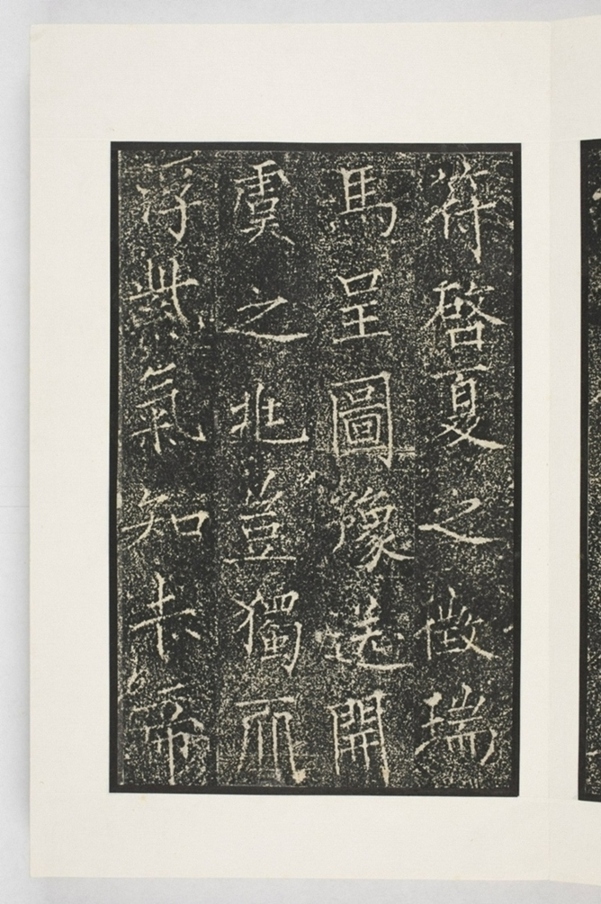 符啓夏之徵瑞
馬呈圖豫送開
虞之兆豈獨
浮紫氣知帝